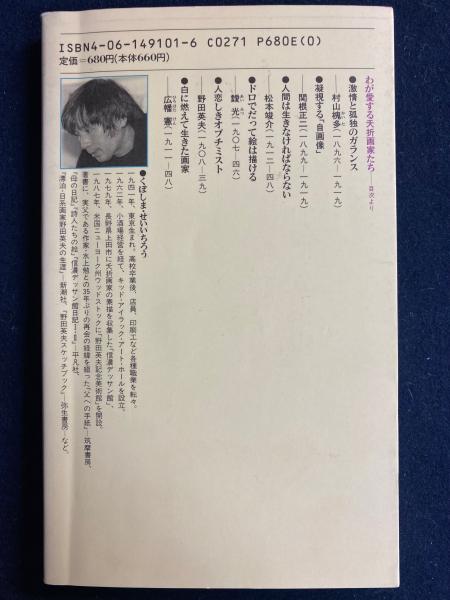 ISBN4-06-149101-6 C0271 P680E(0)
定価=680円(本体660円)
わが愛する夭折画家たち―目次より
●激情と孤独のガランス
―村山槐多(一八九六―一九一九)
●凝視する「自画像」
―関根正二(一八九九―一九一九)
●人間は生きなければならない
―松本竣介(一九一二―四八)
●ドロでだって絵は描ける
―靉光(一九〇七―四六)
●人恋しきオプチミスト
―野田英夫(一九〇八―三九)
●白に燃えて生きた画家
―広幡憲(一九一一―四八)
●くぼしま・せいいちろう
一九四一年、東京生まれ。高校卒業後、店員、印刷工など各種職業を転々。
一九六二年、小酒場経営を経て、キッド・アイラック・アート・ホールを設立。
一九七九年、長野県上田市に夭折画家の素描を収集した「信濃デッサン館」、
一九八七年、米国ニューヨーク州ウッドストックに「野田英夫記念美術館」を開設。
著書に、実父である作家・水上勉との35年ぶりの再会の経緯を綴った『父への手紙』―筑摩書房、
『母の日記』『詩人たちの絵』『信濃デッサン館日記Ⅰ・Ⅱ』―平凡社、
『漂泊・日系画家野田英夫の生涯』―新潮社、『野田英夫スケッチブック』―弥生書房―など。